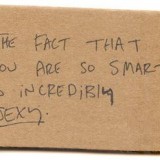 THE FACT THAT
YOU ARE SO SMART
IS INCREDIBLY
SEXY.